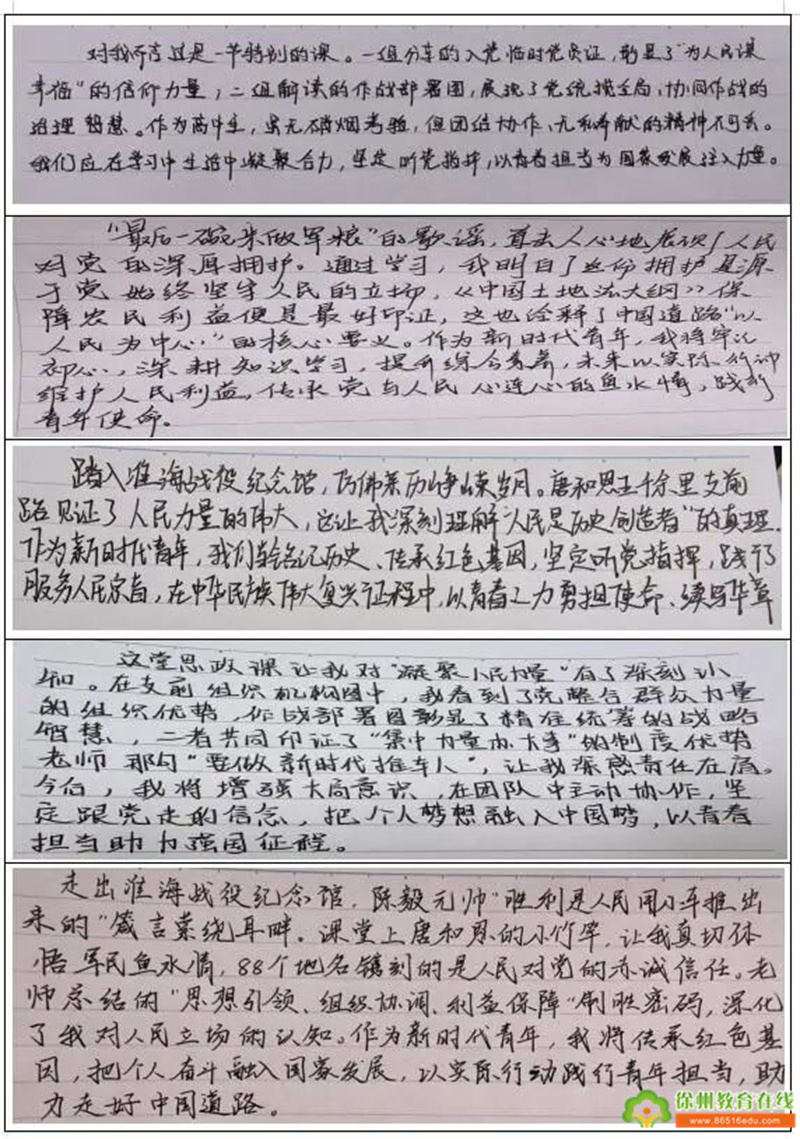 对我而言这是一节特别的课。一组分享的入党临时党员证，彰显了“为人民谋
幸福”的信仰力量；二组解读的作战部署图，展现了党统揽全局、协同作战的
治理智慧。作为高中生，虽无硝烟考验，但团结协作、无私奉献的精神不可丢。
我们应在学习中生活中凝聚合力，坚定听党指挥，以青春担当为国家发展注入力量。
“最后一碗米做军粮”的歌谣，直击人心地展现了人民
对党的深厚拥护。通过学习，我明白了这份拥护是源
于党始终坚守人民的立场，《中国土地法大纲》保
障农民利益便是最好印证，这也诠释了中国道路“以
人民为中心”的核心要义。作为新时代青年，我将牢记
初心，深耕知识学习，提升综合素养，未来以实际行动
维护人民利益，传承党与人民心连心的鱼水情，践行
青年使命。
踏入淮海战役纪念馆，仿佛亲历峥嵘岁月。唐和恩五千余里支前
路见证了人民力量的伟大，这让我深刻理解“人民是历史创造者”的真理．
作为新时代青年，我们要铭记历史、传承红色基因，坚定听党指挥，践行
服务人民宗旨，在中华民族伟大复兴征程中，以青春之力勇担使命、续写华章
这堂思政课让我对“凝聚人民力量”有了深刻认
知。在支前组织机构图中，我看到了党整合群众力量
的组织优势，作战部署图彰显了精准统筹的战略
智慧，二者共同印证了“集中力量办大事”的制度优势
老师那句“要做新时代推车人”，让我深感责任在肩。
今后，我将增强大局意识，在团队中主动协作，坚
定跟党走的信念，把个人梦想融入中国梦，以青春
担当助力强国征程。
走出淮海战役纪念馆，陈毅元帅“胜利是人民用小车推出
来的”箴言萦绕耳畔。课堂上唐和恩的小竹竿，让我真切体
悟军民鱼水情，88个地名镌刻的是人民对党的赤诚信任。老
师总结的“思想引领、组织协调、利益保障”制胜密码，深化
了我对人民立场的认知。作为新时代青年，我将传承红色基
因，把个人奋斗融入国家发展，以实际行动践行青年担当，助
力走好中国道路。
徐州教育在线
www.86516edu.com